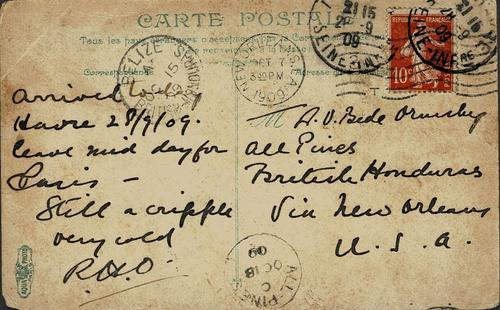 CARTE POSTALE
Tous les pays étrangers n'acceptent pas la
Correspondance
REPUBLIQUE FRANÇAISE
10
21 15
28-9
09
BELIZE
OC 15
NEW ORLEANS, LA.
OCT 7
3 30 PM
Arrived
Havre 28/9/09.
leave mid day for
Paris —
Still a cripple
very cold
M A. V. Bede Ormsby
All Pines
British Honduras
Via New Orleans
U. S. A.
ALL PINES
C
OC 18
09
AQUA PHOTO